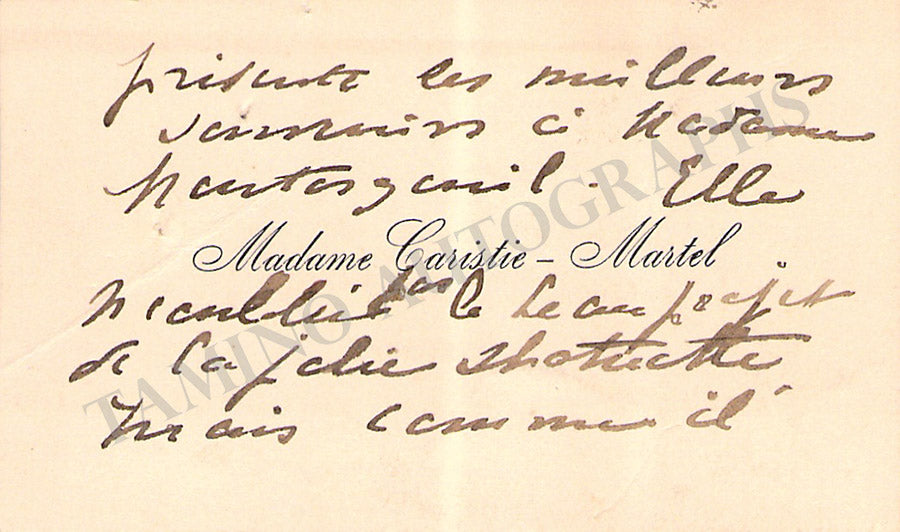 présente ses meilleurs
souvenirs à Madame
Montorgueil. Elle
Madame Caristie - Martel
n'oublie pas le beau projet
de la jolie statuette
mais comme il
TAMINO AUTOGRAPHS